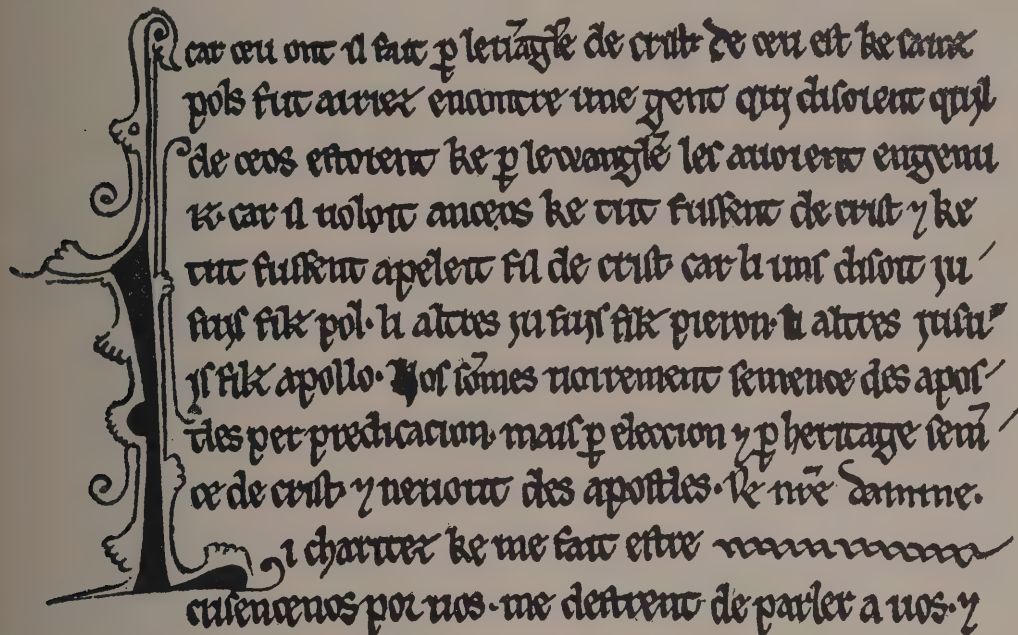 car ceu ont il fait p̱ leuãgl̃e de crist. De ceu est ke sainz
pols fut auriez encontre une gent quj disoient qujl
de ceos estoient ke p̱ lewanglẽ les auoient engenu
iz. car il uoloit anceos ke tut fussent de crist ⁊ ke
tut fussent apeleit fil de crist. car li uns disoit ju
suys filz pol. li altres ju suys filz pieron. li altres ju su
ys filz apollo. Nos sõmes uoirement semence des apos
tles per predicacion. mais p̱ eleccion ⁊ p̱ heritage semẽ
ce de crist. ⁊ neniont des apostles. De nr̃e damme.
Li charitez ke me fait estre
cusencenos por uos. me destrent de parler a uos. ⁊